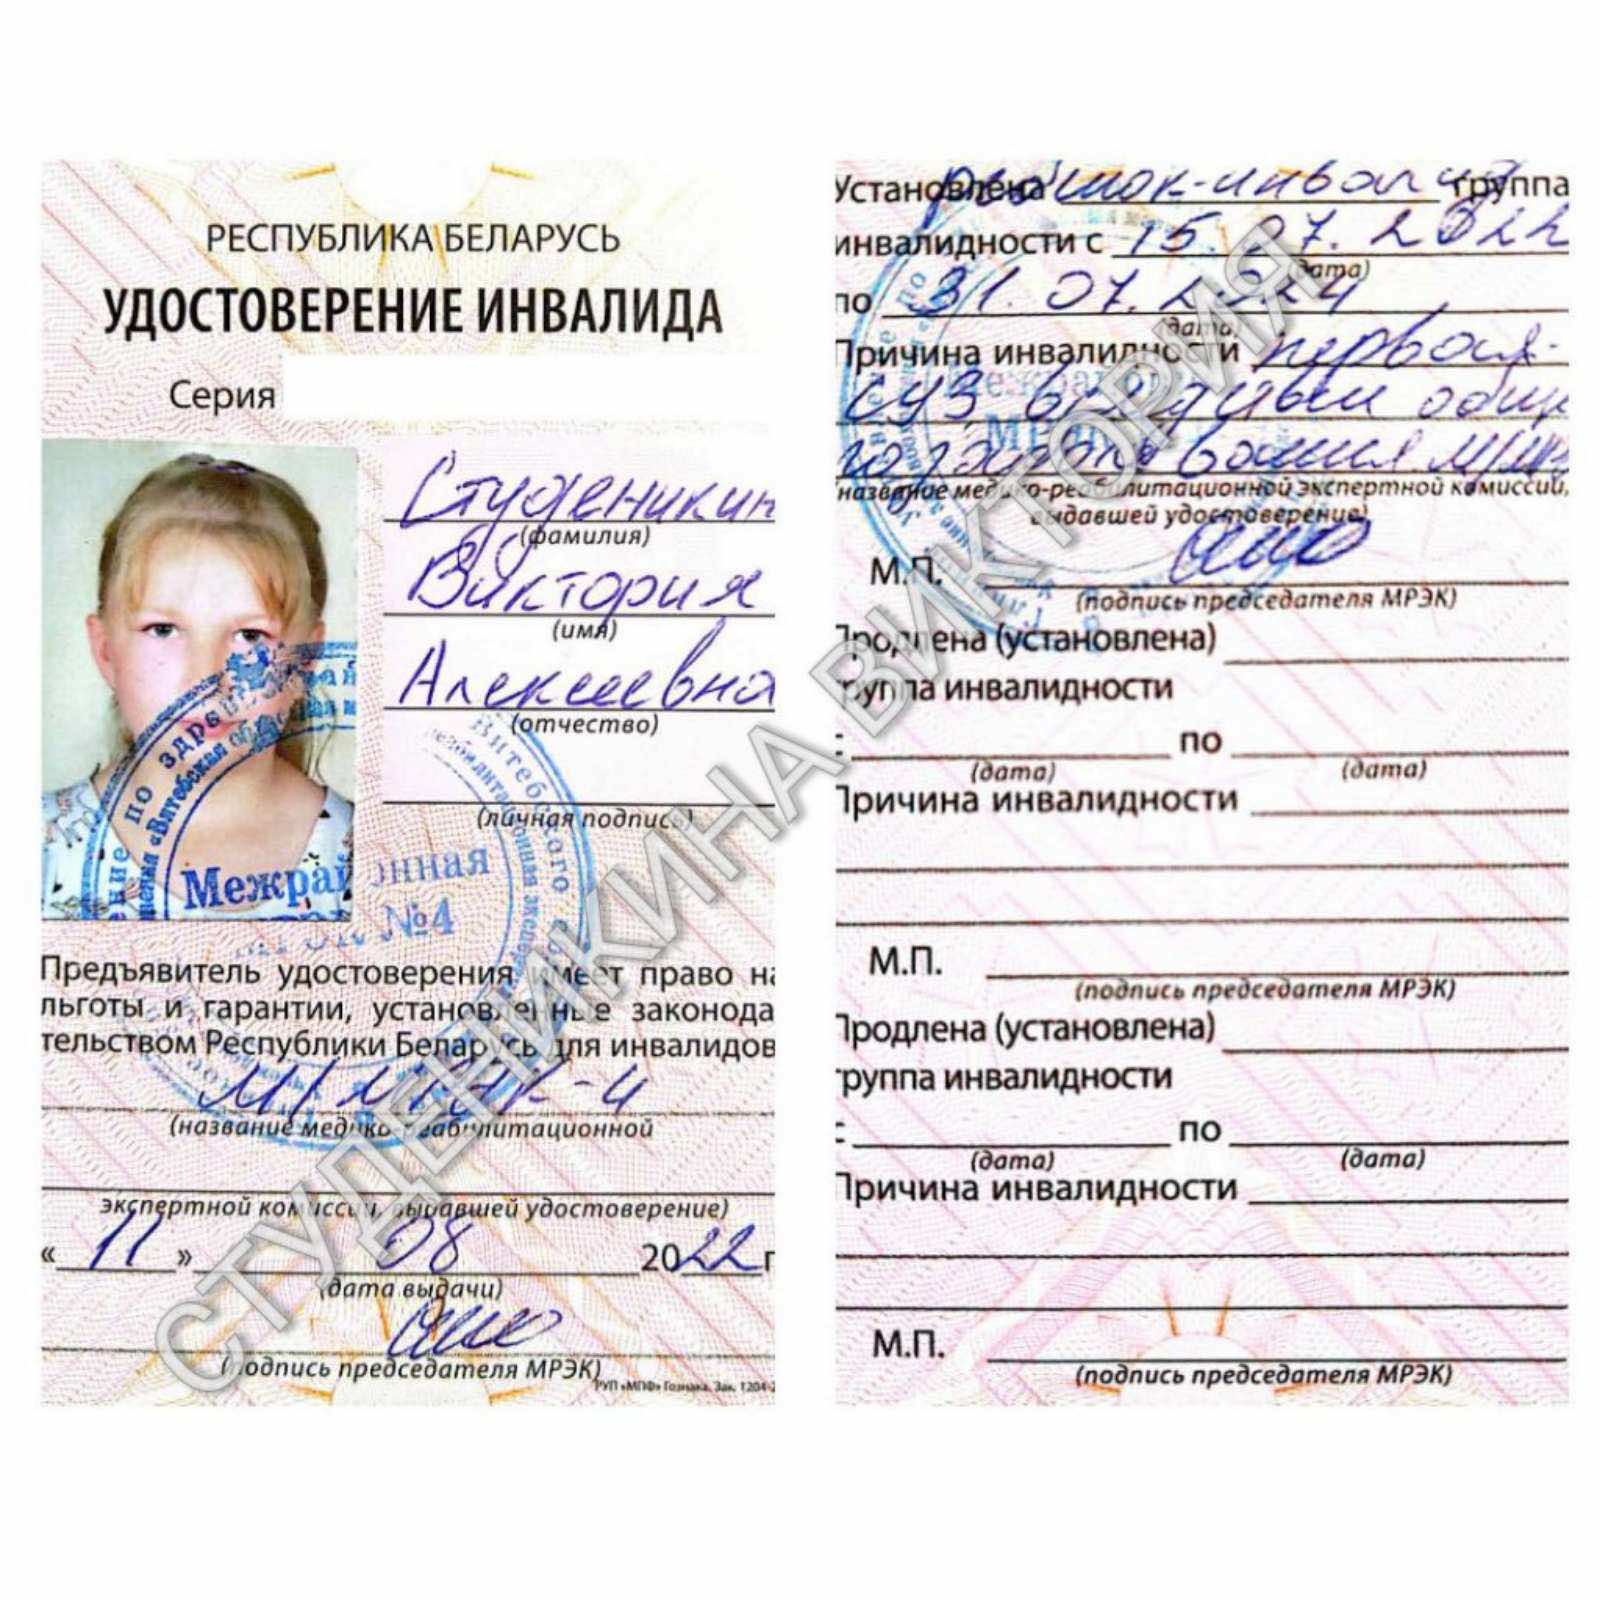 РЕСПУБЛИКА БЕЛАРУСЬ
УДОСТОВЕРЕНИЕ ИНВАЛИДА
Серия
Студеникин
(фамилия)
Виктория
(имя)
Алексеевна
(отчество)
(личная подпись)
по здрав
Витебского
Межрайонная
№4
Предъявитель удостоверения имеет право на
льготы и гарантии, установленные законода
тельством Республики Беларусь для инвалидов
(название медико-реабилитационной
экспертной комиссии, выдавшей удостоверение)
« 11 » 08 2022 г
(дата выдачи)
(подпись председателя МРЭК)
РУП «МПФ» Гознака. Зак. 1204-2
Установлена ребёнок-инвалид группа
инвалидности с 15.07.2022
(дата)
по 31.07.2024
(дата)
Причина инвалидности первая-
обще
го заболевания
(название медико-реабилитационной экспертной комиссии,
выдавшей удостоверение)
М.П.
(подпись председателя МРЭК)
Продлена (установлена)
группа инвалидности
с по
(дата) (дата)
Причина инвалидности
М.П.
(подпись председателя МРЭК)
Продлена (установлена)
группа инвалидности
с по
(дата) (дата)
Причина инвалидности
М.П.
(подпись председателя МРЭК)
СТУДЕНИКИНА ВИКТОРИЯ